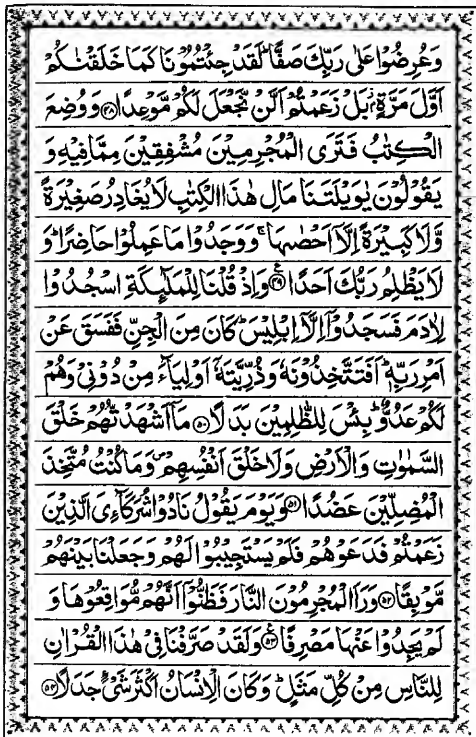 وَعُرِضُوۡا عَلٰى رَبِّكَ صَفًّا ؕ لَقَدۡ جِئۡتُمُوۡنَا كَمَا خَلَقۡنٰكُمۡ
اَوَّلَ مَرَّةٍۢ ۫ بَلۡ زَعَمۡتُمۡ اَلَّنۡ نَّجۡعَلَ لَـكُمۡ مَّوۡعِدًا ﴿۴۸﴾ وَوُضِعَ
الۡكِتٰبُ فَتَرَى الۡمُجۡرِمِيۡنَ مُشۡفِقِيۡنَ مِمَّا فِيۡهِ وَ
يَقُوۡلُوۡنَ يٰوَيۡلَـتَـنَا مَالِ هٰذَا الۡـكِتٰبِ لَا يُغَادِرُ صَغِيۡرَةً
وَّلَا كَبِيۡرَةً اِلَّاۤ اَحۡصٰٮهَا ۚ وَ وَجَدُوۡا مَا عَمِلُوۡا حَاضِرًا ؕ وَ
لَا يَظۡلِمُ رَبُّكَ اَحَدًا ﴿۴۹﴾ وَاِذۡ قُلۡنَا لِلۡمَلٰۤٮِٕكَةِ اسۡجُدُوۡا
لِاٰدَمَ فَسَجَدُوۡۤا اِلَّاۤ اِبۡلِيۡسَؕ كَانَ مِنَ الۡجِنِّ فَفَسَقَ عَنۡ
اَمۡرِ رَبِّهٖؕ اَفَتَـتَّخِذُوۡنَهٗ وَذُرِّيَّتَهٗۤ اَوۡلِيَآءَ مِنۡ دُوۡنِىۡ وَهُمۡ
لَـكُمۡ عَدُوٌّ ؕ بِئۡسَ لِلظّٰلِمِيۡنَ بَدَلًا ﴿۵۰﴾ مَاۤ اَشۡهَدْتُّهُمۡ خَلۡقَ
السَّمٰوٰتِ وَالۡاَرۡضِ وَلَا خَلۡقَ اَنۡفُسِهِمۡ وَمَا كُنۡتُ مُتَّخِذَ
الۡمُضِلِّيۡنَ عَضُدًا ﴿۵۱﴾ وَيَوۡمَ يَقُوۡلُ نَادُوۡا شُرَكَآءِىَ الَّذِيۡنَ
زَعَمۡتُمۡ فَدَعَوۡهُمۡ فَلَمۡ يَسۡتَجِيۡبُوۡا لَهُمۡ وَجَعَلۡنَا بَيۡنَهُمۡ
مَّوۡبِقًا ﴿۵۲﴾ وَرَاَ الۡمُجۡرِمُوۡنَ النَّارَ فَظَنُّوۡۤا اَنَّهُمۡ مُّوَاقِعُوۡهَا وَ
لَمۡ يَجِدُوۡا عَنۡهَا مَصۡرِفًا ﴿۵۳﴾ وَلَقَدۡ صَرَّفۡنَا فِىۡ هٰذَا الۡقُرۡاٰنِ
لِلنَّاسِ مِنۡ كُلِّ مَثَلٍ ؕ وَكَانَ الۡاِنۡسَانُ اَكۡثَرَ شَىۡءٍ جَدَلًا ﴿۵۴﴾